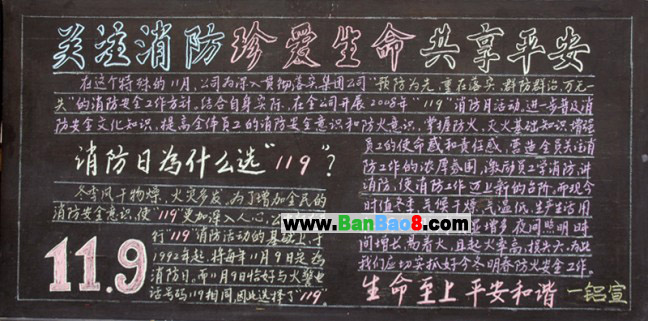 关注消防 珍爱生命 共享平安
在这个特殊的11月,公司为深入贯彻落实集团公司"预防为先,重在落实,群防群治,万元一失"的消防安全工作方针,结合自身实际,在全公司开展2008年"119"消防月活动,进一步普及消
防安全文化知识,提高全体员工的消防安全意识和防火意识,掌握防火、灭火基础知识,增强
员工的使命感和责任感,营造全员关注消
防工作的浓厚氛围,激励员工学消防,讲
消防,使消防工作迈上新的台阶。而现今
时值冬季,气候干燥,气温低,生产生活用
增多,夜间照明时
间增长,易着火,且起火率高,损失大,为此
我们应切实抓好今冬明春防火安全工作。
消防日为什么选"119"?
冬季风干物燥,火灾多发,为了增加全民的
消防安全意识,使"119"更加深入人心,公
行"119"消防活动的基础上,于
1992年起,将每年11月9日定为
消防日。而11月9日恰好与火警电
话号码119相同,因此选择了"119"。
11.9
生命至上 平安和谐
一铝宣
www.BanBao8.com